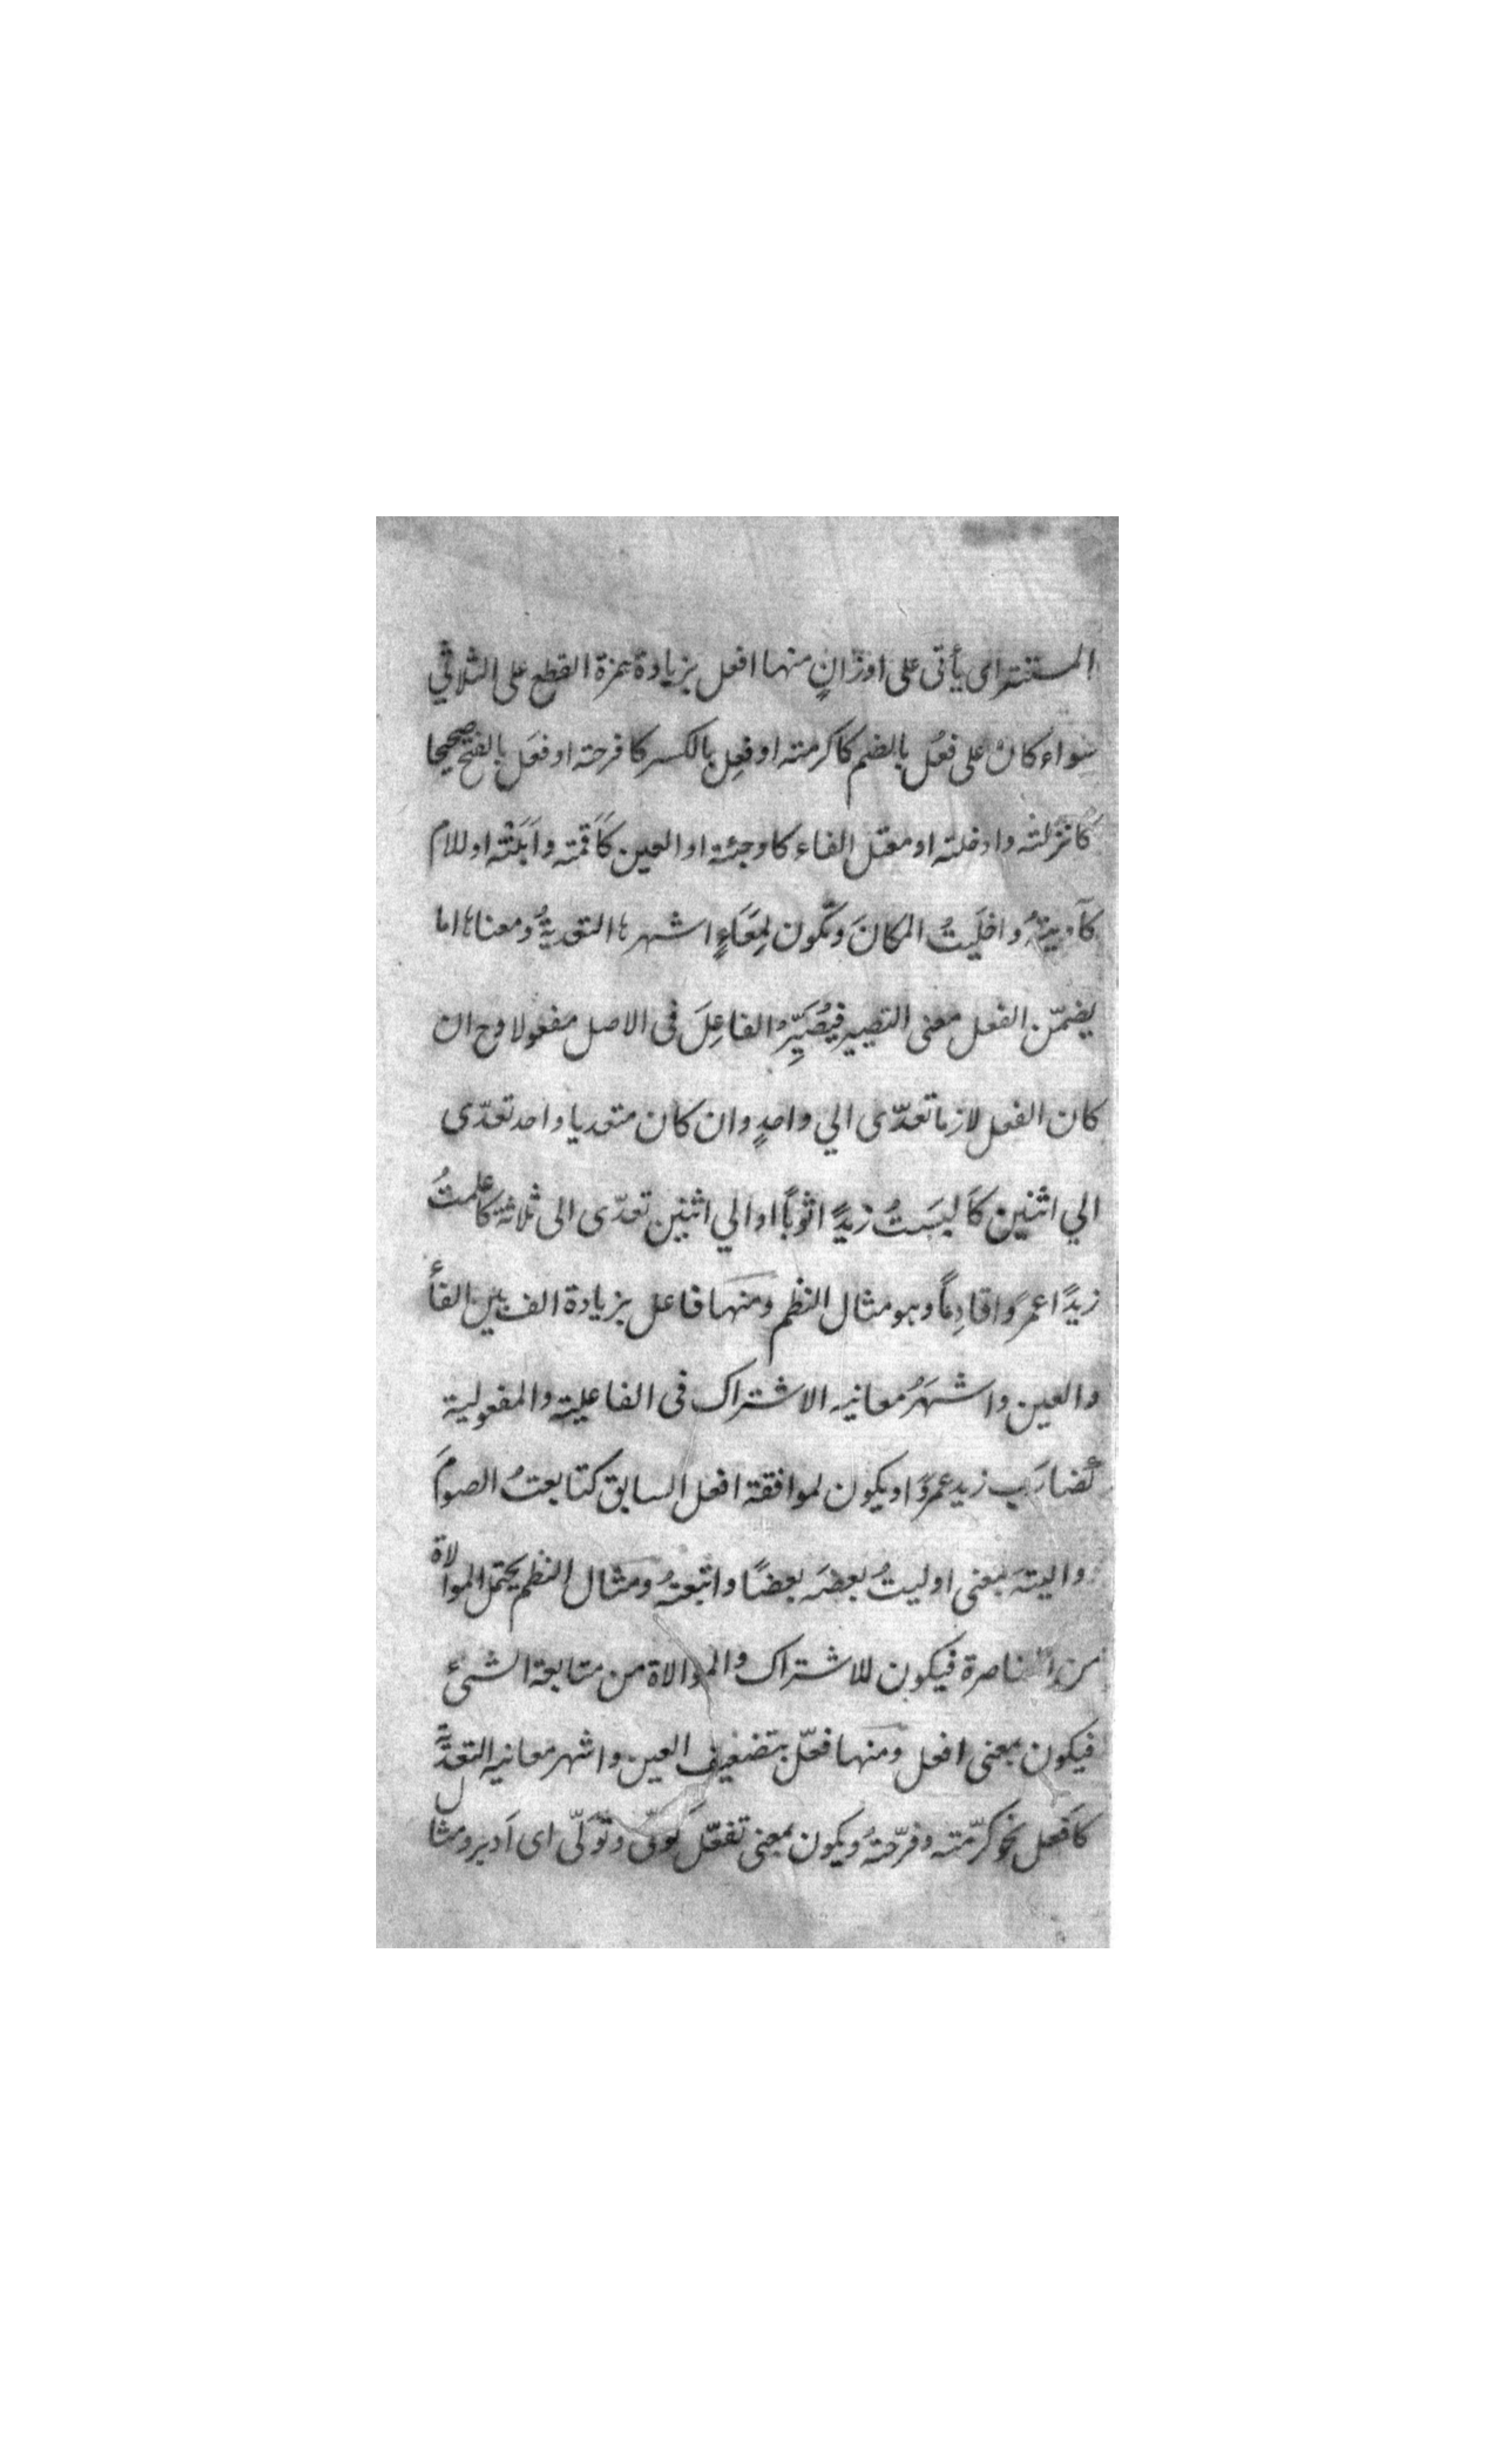 المستتراى يأتى على اوزانٍ منها افعل بزيادة همزة القطع على الثلاثي
سواء كان على فعُل بالضم كاكرمته او فعِل بالكسر كافرحته او فعَل بالفتح صحيحا
كَانزلته وادخلته او معتل الفاء كاوجئته او العين كَاَقمته واَبَنْتْه او للام
كآ وافلَيتُ المكانَ وتكون لِمَعَاءٍ اشهرها التعديةُ ومعناها اما
يضمّن الفعل معنى التصيير فيُصَيِّرُ الفاعِلَ فى الاصل مفعولا وح ان
كان الفعل لازما تعدّى الي واحدٍ وان كان متعديا واحد تعدّى
الي اثنين كَاَلبَسَتُ زيدًا ثوبًا او الي اثنين تعدّى الى ثلاثة كاعلمتُ
زيدًا عمرًوا قادِمًا وهو مثال النظم ومنها فاعل بزيادة الف بين الفأ
والعين واشهَرُ معانيه الاشتراك فى الفاعلية والمفعولية
كضارَب زيد عمروًا ويكون لموافقة افعل السابق كتابعتُ الصومَ
وواليته بمعنى اوليتُ بعضه بعضًا واتبعتهُ ومثال النظم يحتمل الموالاة
من المناصرة فيكون للاشتراك والموالاة من متابعة الشئ
فيكون بمعنى افعل ومنها فعّل بتضعيف العين واشهر معانيه التعدّية
كاَفعل نحو كرّمته وفرّحتهُ ويكون بمعنى تفعّل كَوَلّى وتَوَلّى اى اَدبر ومثال